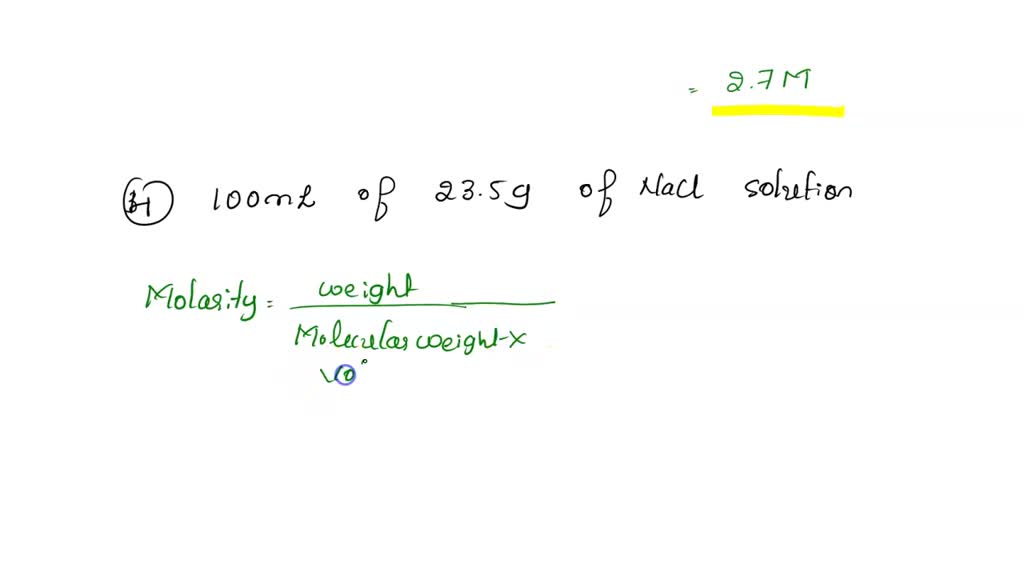 = 2.7 M
100mL of 23.5g of NaCl solution
Molarity = weight
Molecular weight x
vo